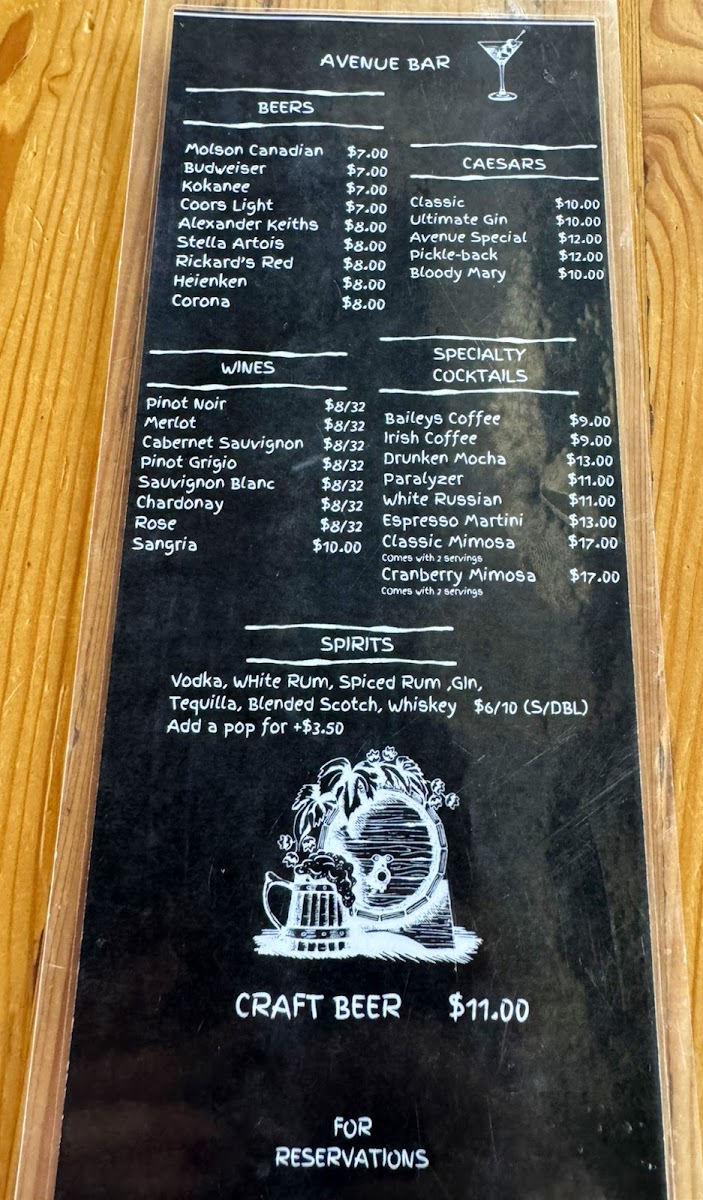 AVENUE BAR
BEERS
Molson Canadian $7.00
Budweiser $7.00
Kokanee $7.00
Coors Light $7.00
Alexander Keiths $8.00
Stella Artois $8.00
Rickard's Red $8.00
Heienken $8.00
Corona $8.00
CAESARS
Classic $10.00
Ultimate Gin $10.00
Avenue Special $12.00
Pickle-back $12.00
Bloody Mary $10.00
WINES
Pinot Noir $8/32
Merlot $8/32
Cabernet Sauvignon $8/32
Pinot Grigio $8/32
Sauvignon Blanc $8/32
Chardonay $8/32
Rose $8/32
Sangria $10.00
SPECIALTY
COCKTAILS
Baileys Coffee $9.00
Irish Coffee $9.00
Drunken Mocha $13.00
Paralyzer $11.00
White Russian $11.00
Espresso Martini $13.00
Classic Mimosa $17.00
Comes with 2 servings
Cranberry Mimosa $17.00
Comes with 2 servings
SPIRITS
Vodka, WHite RUm, SPiced Rum ,GIn,
Tequilla, Blended Scotch, Whiskey $6/10 (S/DBL)
Add a pop for +$3.50
CRAFT BEER $11.00
FOR
RESERVATIONS